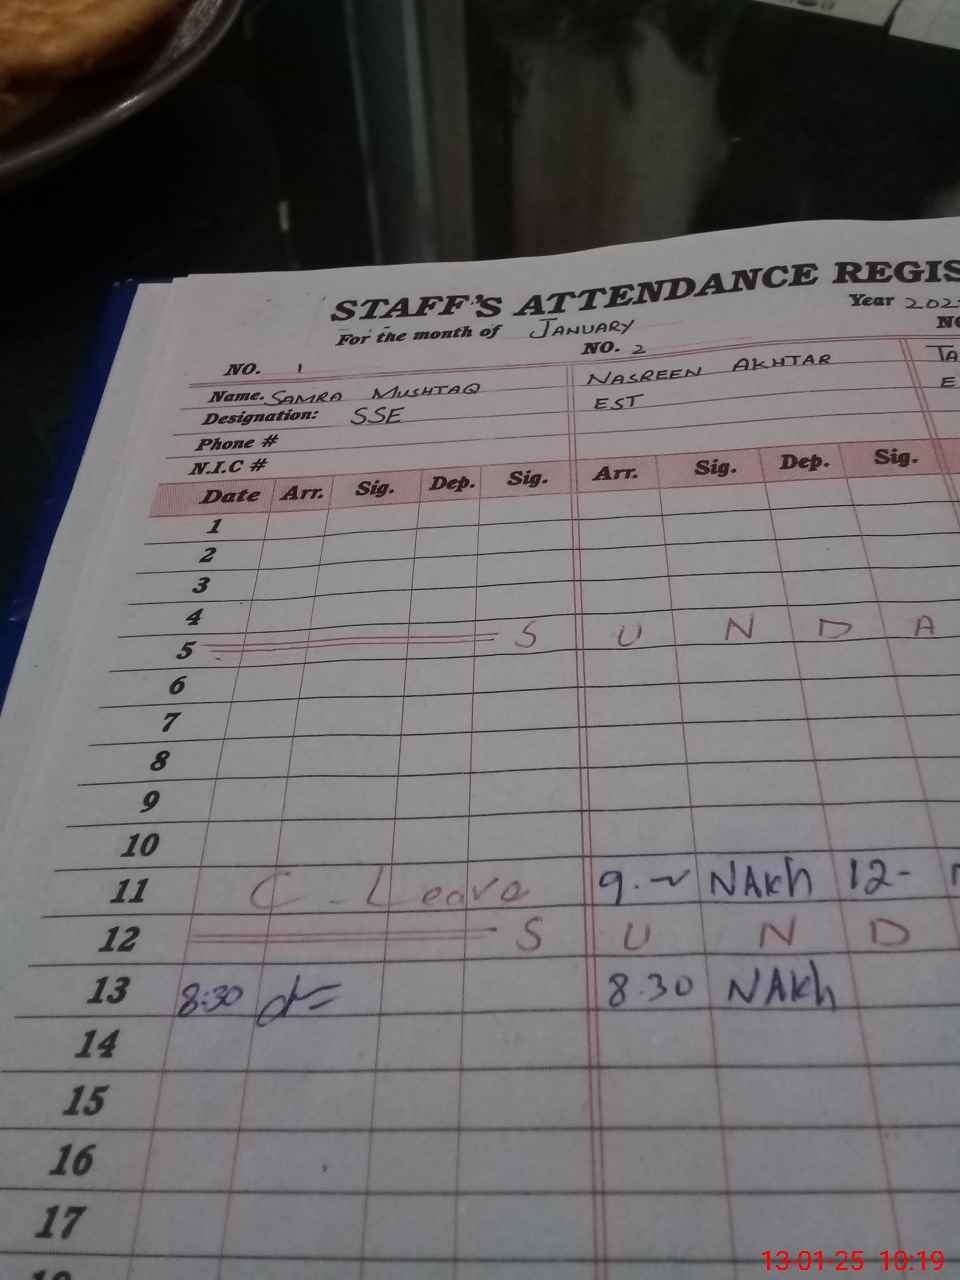 STAFF'S ATTENDANCE REGIS
For the month of JANUARY Year 202
NO. 1 NO. 2 NO
Name. SAMRA MUSHTAQ NASREEN AKHTAR TA
Designation: SSE EST E
Phone #
N.I.C #
Date Arr. Sig. Dep. Sig. Arr. Sig. Dep. Sig.
1
2
3
4
5 S U N D A
6
7
8
9
10
11 C-Leave 9.~ NAkh 12-
12 S U N D
13 8:30 8.30 NAkh
14
15
16
17
13-01-25 10:19